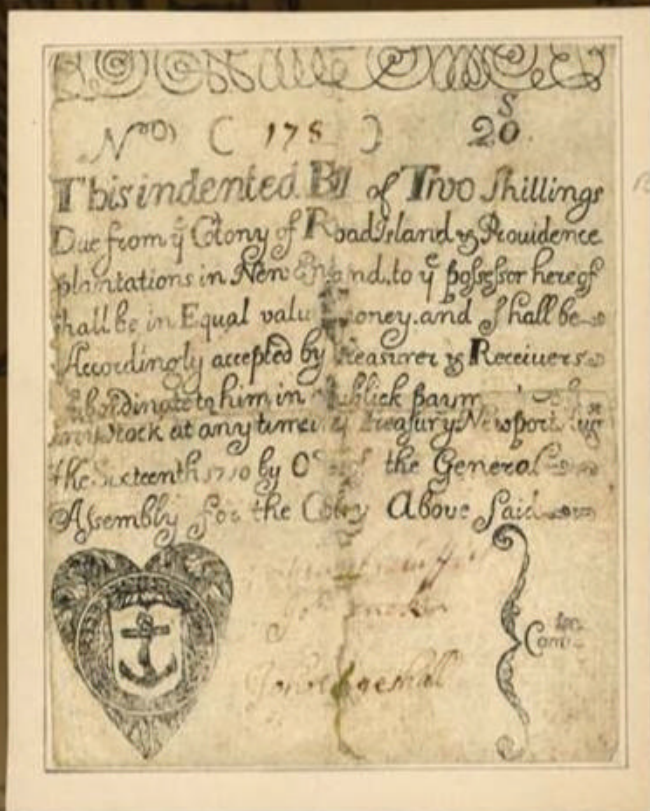 No ( 178 ) 20s
This indented Bill of Two shillings
Due from ye Colony of Road Island & Providence
plantations in New England, to ye possessor hereof
shall be in Equal value money. and Shall be
Accordingly accepted by Treasurer & Receivers
subordinate to him in Publick paym
Stock at any time Treasury. Newport
the Sixteenth 1710 by the General
Assembly for the Colony Above Said
Com